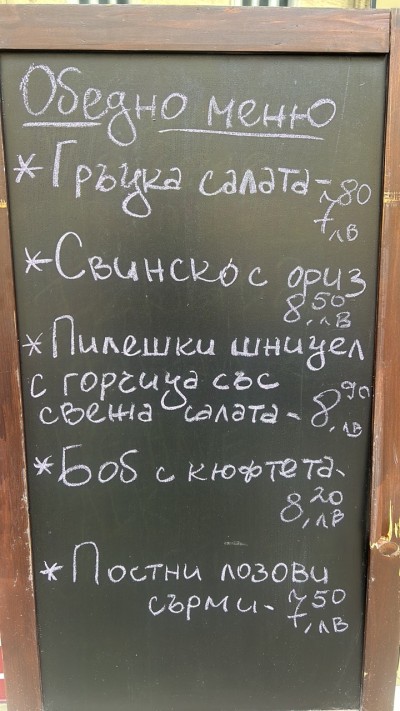 Обедно меню
* Гръцка салата - 7,80 лв
* Свинско с ориз
8,50 лв
* Пилешки шницел
с горчица със
свежа салата - 8,90 лв
* Боб с кюфтета -
8,20 лв
* Постни лозови
сърми - 7,50 лв